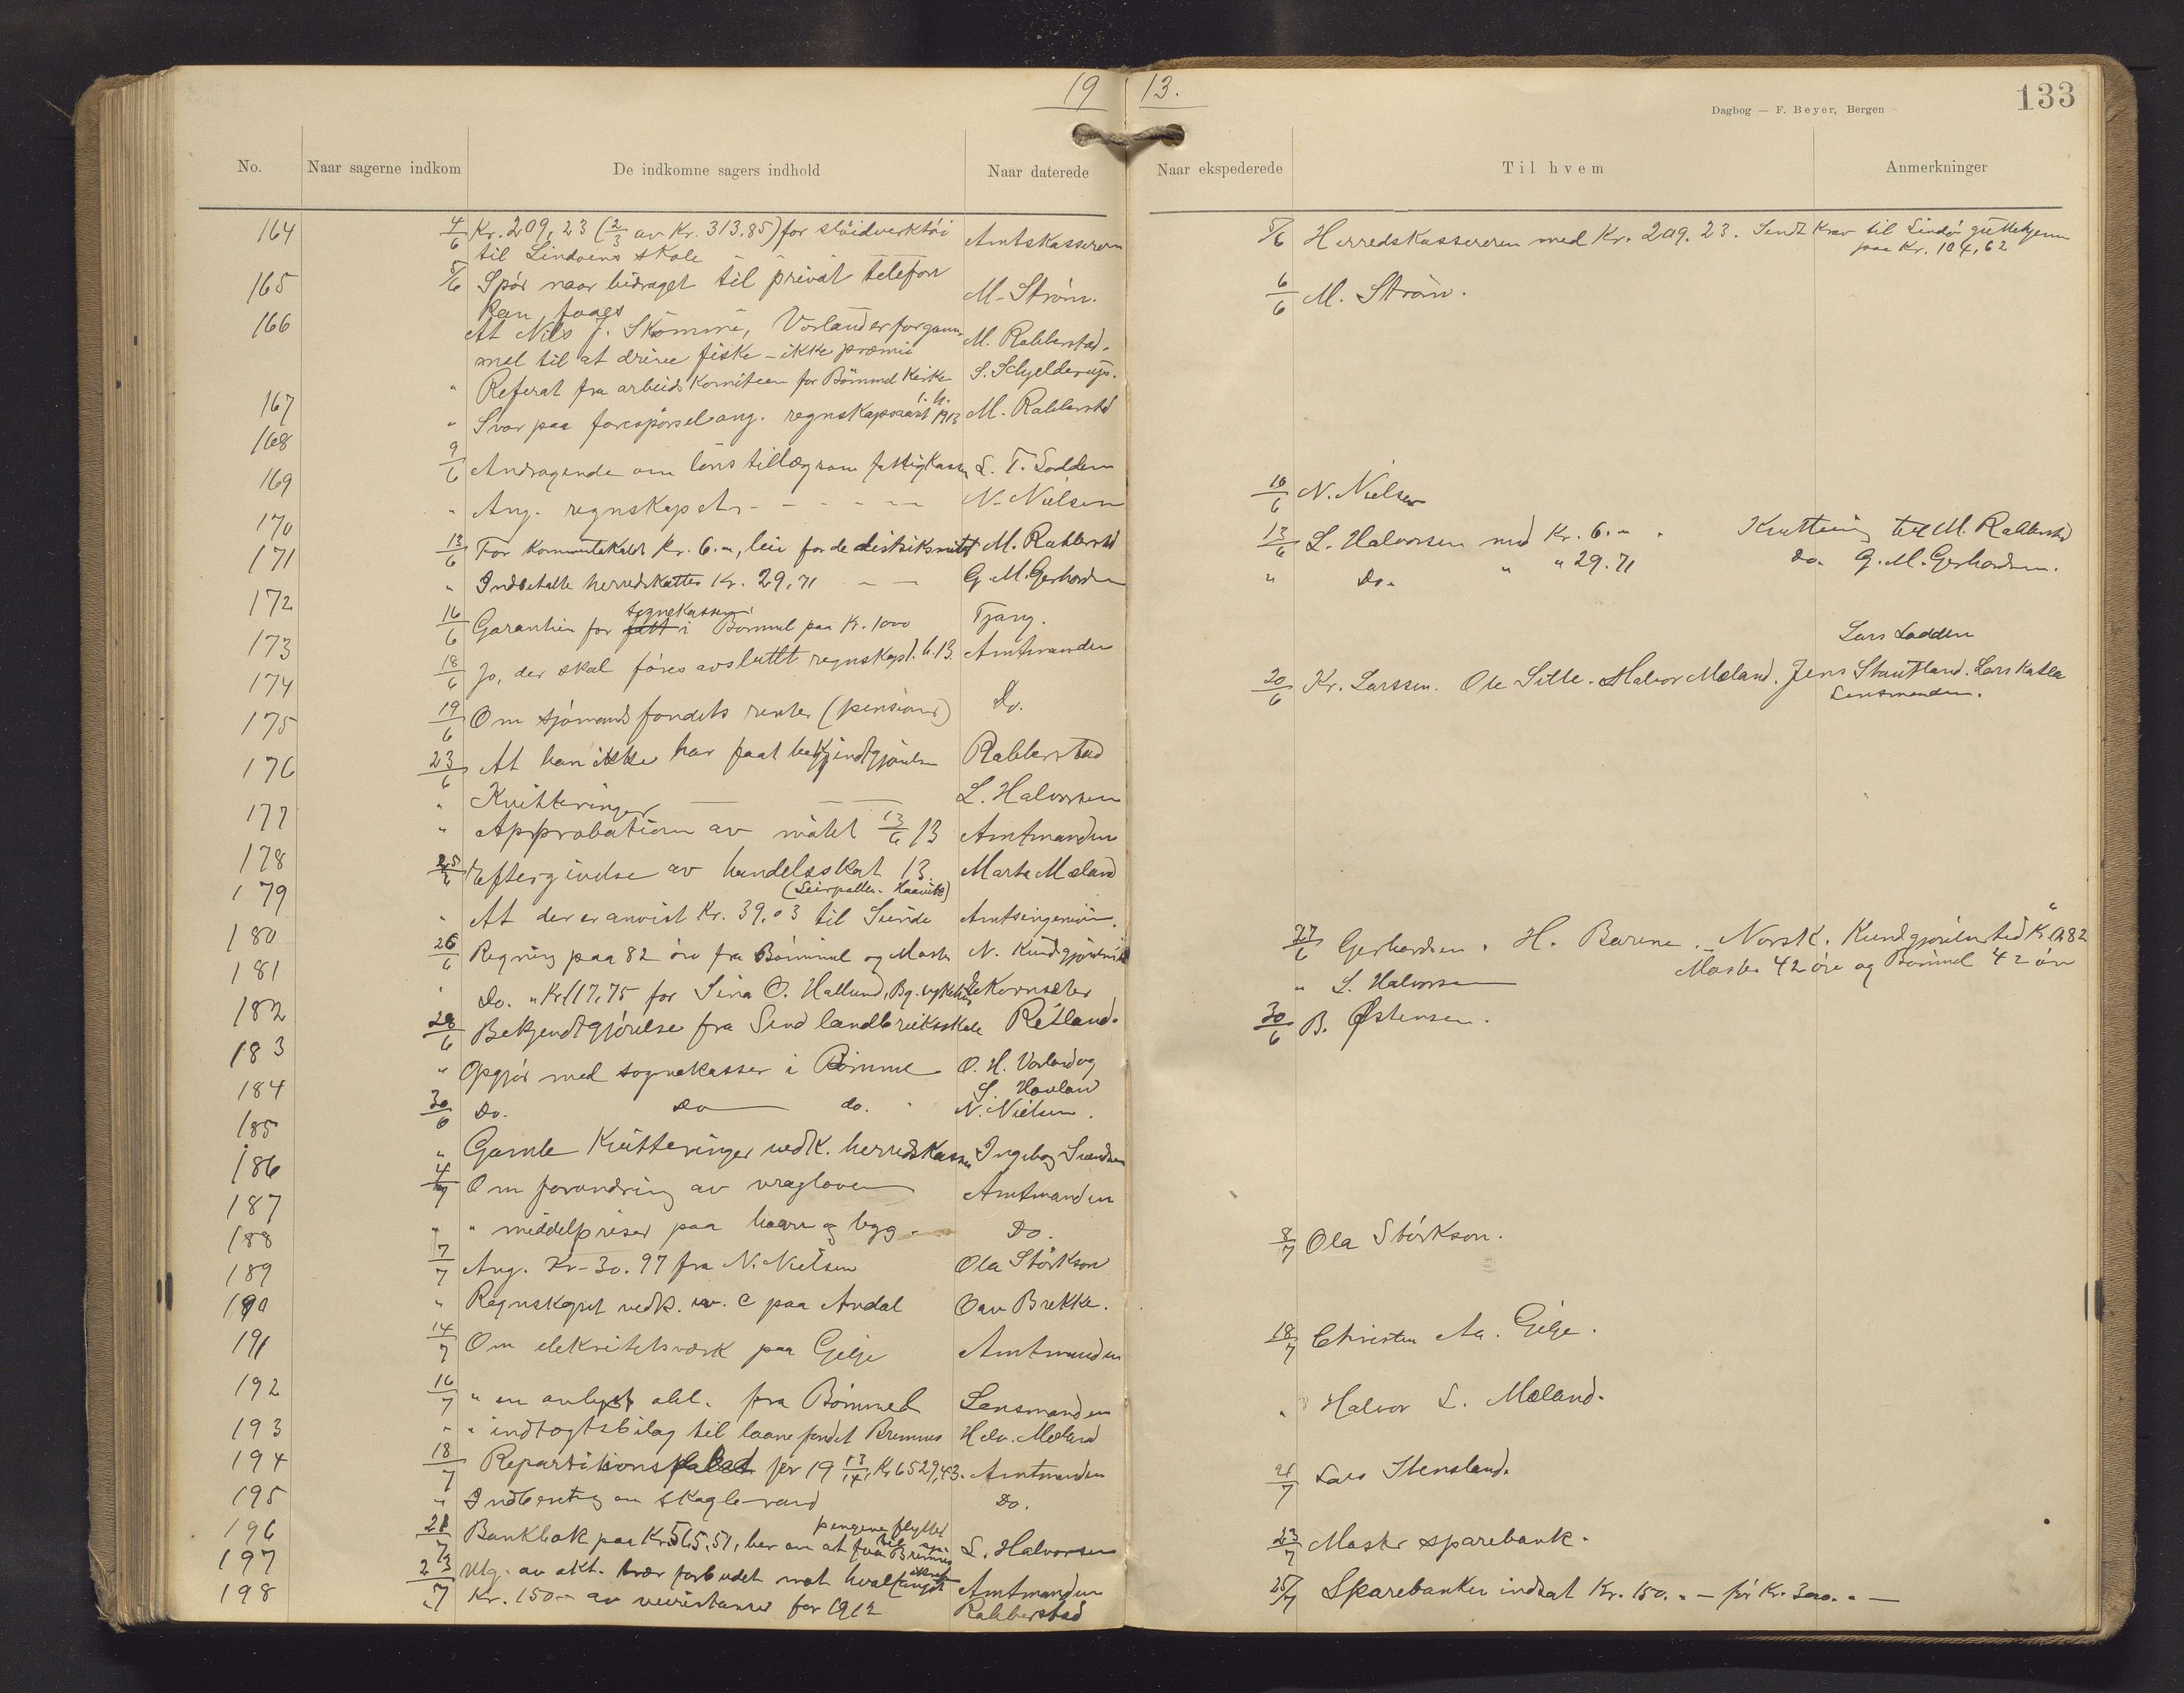 19 13.
133
Dagbog — F. Beyer, Bergen
No. Naar sagerne indkom De indkomne sagers indhold Naar daterede Naar ekspederede Til hvem Anmerkninger
164 4/6 Kr. 209,23 (2/3 av Kr. 313,85) for slöidverktöi Amtskassereren 5/6 Herredskassereren med Kr. 209.23. Sendt Krav til Lindö guttehjem
til Lindöens skole paa Kr. 104,62
165 5/6 Spör naar bidraget til privat telefon M. Ström. 6/6 M. Ström.
kan faaes
166 At Nils J. Skimmi, Vorland er for gam- M. Rabberstad.
mel til at drive fiske - ikke præmie
167 " Referat fra arbeidskomiteen for Bömmel Kirke S. Schjelderup.
168 " Svar paa forespörsel ang. regnskapsaaret 1. h. 1913 M. Rabberstad
169 9/6 Andragende om lönstillæg som fattigkasser L. T. Lodden
170 " Ang. regnskapet - - - - N. Nielsen 10/6 N. Nielsen
171 13/6 For kommunelokalet Kr. 6.", leie for de distriktsmöter M. Rabberstad 13/6 L. Halvorsen med Kr. 6." . Kvittering til M. Rabberstad
172 " Indbetalte herredskatter Kr. 29,71 - - G. M. Gerhardsen " Do. " " 29.71 Do. G. M. Gerhardsen.
173 16/6 Garantien for sognekassen i Bömmel paa Kr. 1000 Tjang.
174 18/6 Jo, der skal föres avsluttet regnskap 1. h. 13. Amtmanden
Lars Lodden
175 19/6 Om sjömandsfondets renter (pensioner) Do. 20/6 Kr. Larssen. Ole Sille. Halvor Mæland. Jens Stautland. Lars Katla
Lensmanden.
176 23/6 At han ikke har faat bekjendtgjörelse Rabberstad
177 " Kvitteringer — — — L. Halvorsen
178 " Approbation av mötet 13/6 13 Amtmanden
179 25/6 Eftergivelse av handelsskat 13. Marta Mæland
180 " At der er anvist Kr. 39.03 til Sunde (Leirpollen - Kaavik) Amtsingeniör.
181 26/6 Regning paa 82 öre fra Bömmel og Moster N. Kundgjörelsestid 27/6 Gerhardsen. H. Barene. Norsk. Kundgjörelsestid Kr. 0.82
Moster 42 öre og Bömmel 42 öre
182 " Do. " Kr. 117,75 for Sina O. Hallund, Bg. sykehus Kornsæter " L. Halvorsen
183 28/6 Bekjendtgjörelse fra Send landbruksskole Retland. 30/6 B. Østensen.
184 " Opgjör med sognekasser i Bömmel O. H. Vorland og
S. Hovland
185 30/6 Do. Do do. N. Nielsen.
186 " Gamle Kvitteringer vedk. herredskassen Ingeborg Svendsen
187 4/7 Om forandring av vragloven Amtmanden
188 " " middelpriser paa havre og bygg - Do.
189 7/7 Ang. Kr. 30.97 fra N. Nielsen Ola Störkson 8/7 Ola Störkson.
190 " Regnskapet vedk. nr. C paa Andal Oav Brekke.
191 14/7 Om elekritetsverk paa Gilje Amtmanden 18/7 Christen Aa. Gilje.
192 16/7 " en avlyst abl. fra Bömmel Lensmanden " Halvor L. Mæland.
193 " " indtægtsbilag til laanefondet Bremnes Halv. Mæland
194 18/7 Repartitions for 19 13/14, Kr. 6529,43. Amtmanden 21/7 Lars Stensland.
195 " Indberetning om skogbrand Do.
196 21/7 Bankbok paa Kr. 565,51, ber om at faa pengene flyttet til spb. Bremnes L. Halvorsen 23/7 Moster sparebank.
197 23/7 Utg. av akt. hvor forbudet mot hvalfangst Amtmanden
198 "/7 Kr. 150.- av for 1912 Rabberstad 25/7 Sparebanken indsat Kr. 150." — för Kr. 300." —